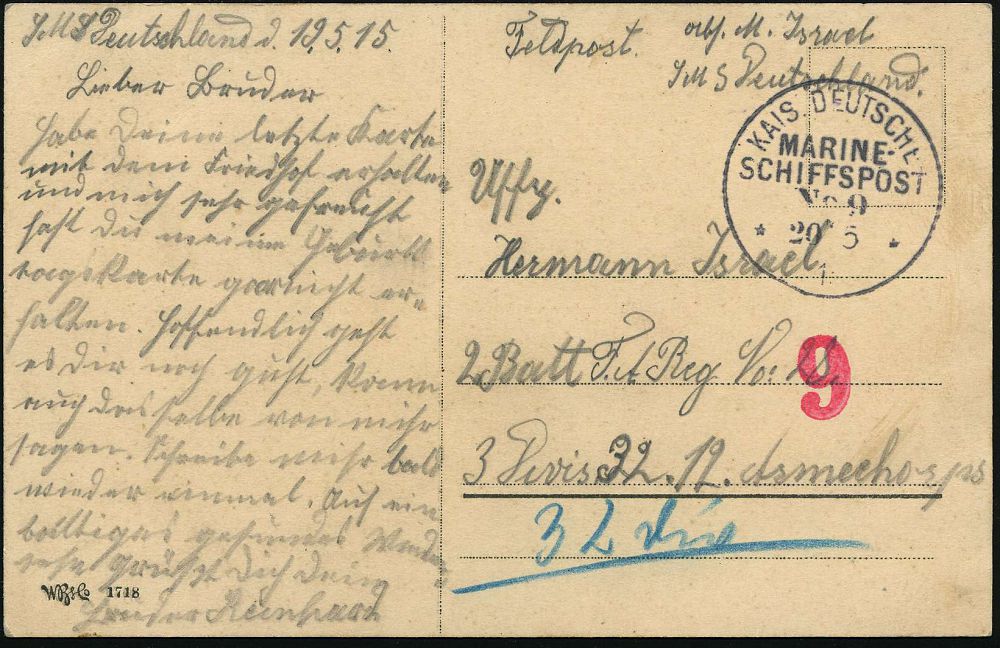 SMS Deutschland d. 19.5.15.
Lieber Bruder
Habe Deine letzte Karte
mit dem Friedhof erhalten
und mich sehr gefreuht
hast Du meine Geburts
tagskarte garnicht er-
halten. Hoffendlich geht
es dir noch guht, kann
auch das selbe von mihr
sagen. Schreibe mihr bald
wieder einmal. Auf ein
baltiges gesundes Wieder-
sehn Grüßt Dich Dein
Bruder Reinhard
W.B.&Co 1718
Feldpost.
M. Israel
SMS Deutschland.
KAIS. DEUTSCHE
MARINE-
SCHIFFSPOST
No 9
* 20 5 *
1
Uffz.
Hermann Israel
2 Batt Reg No:
9
3 Divis 32. 12. Armeekorps
32 Div